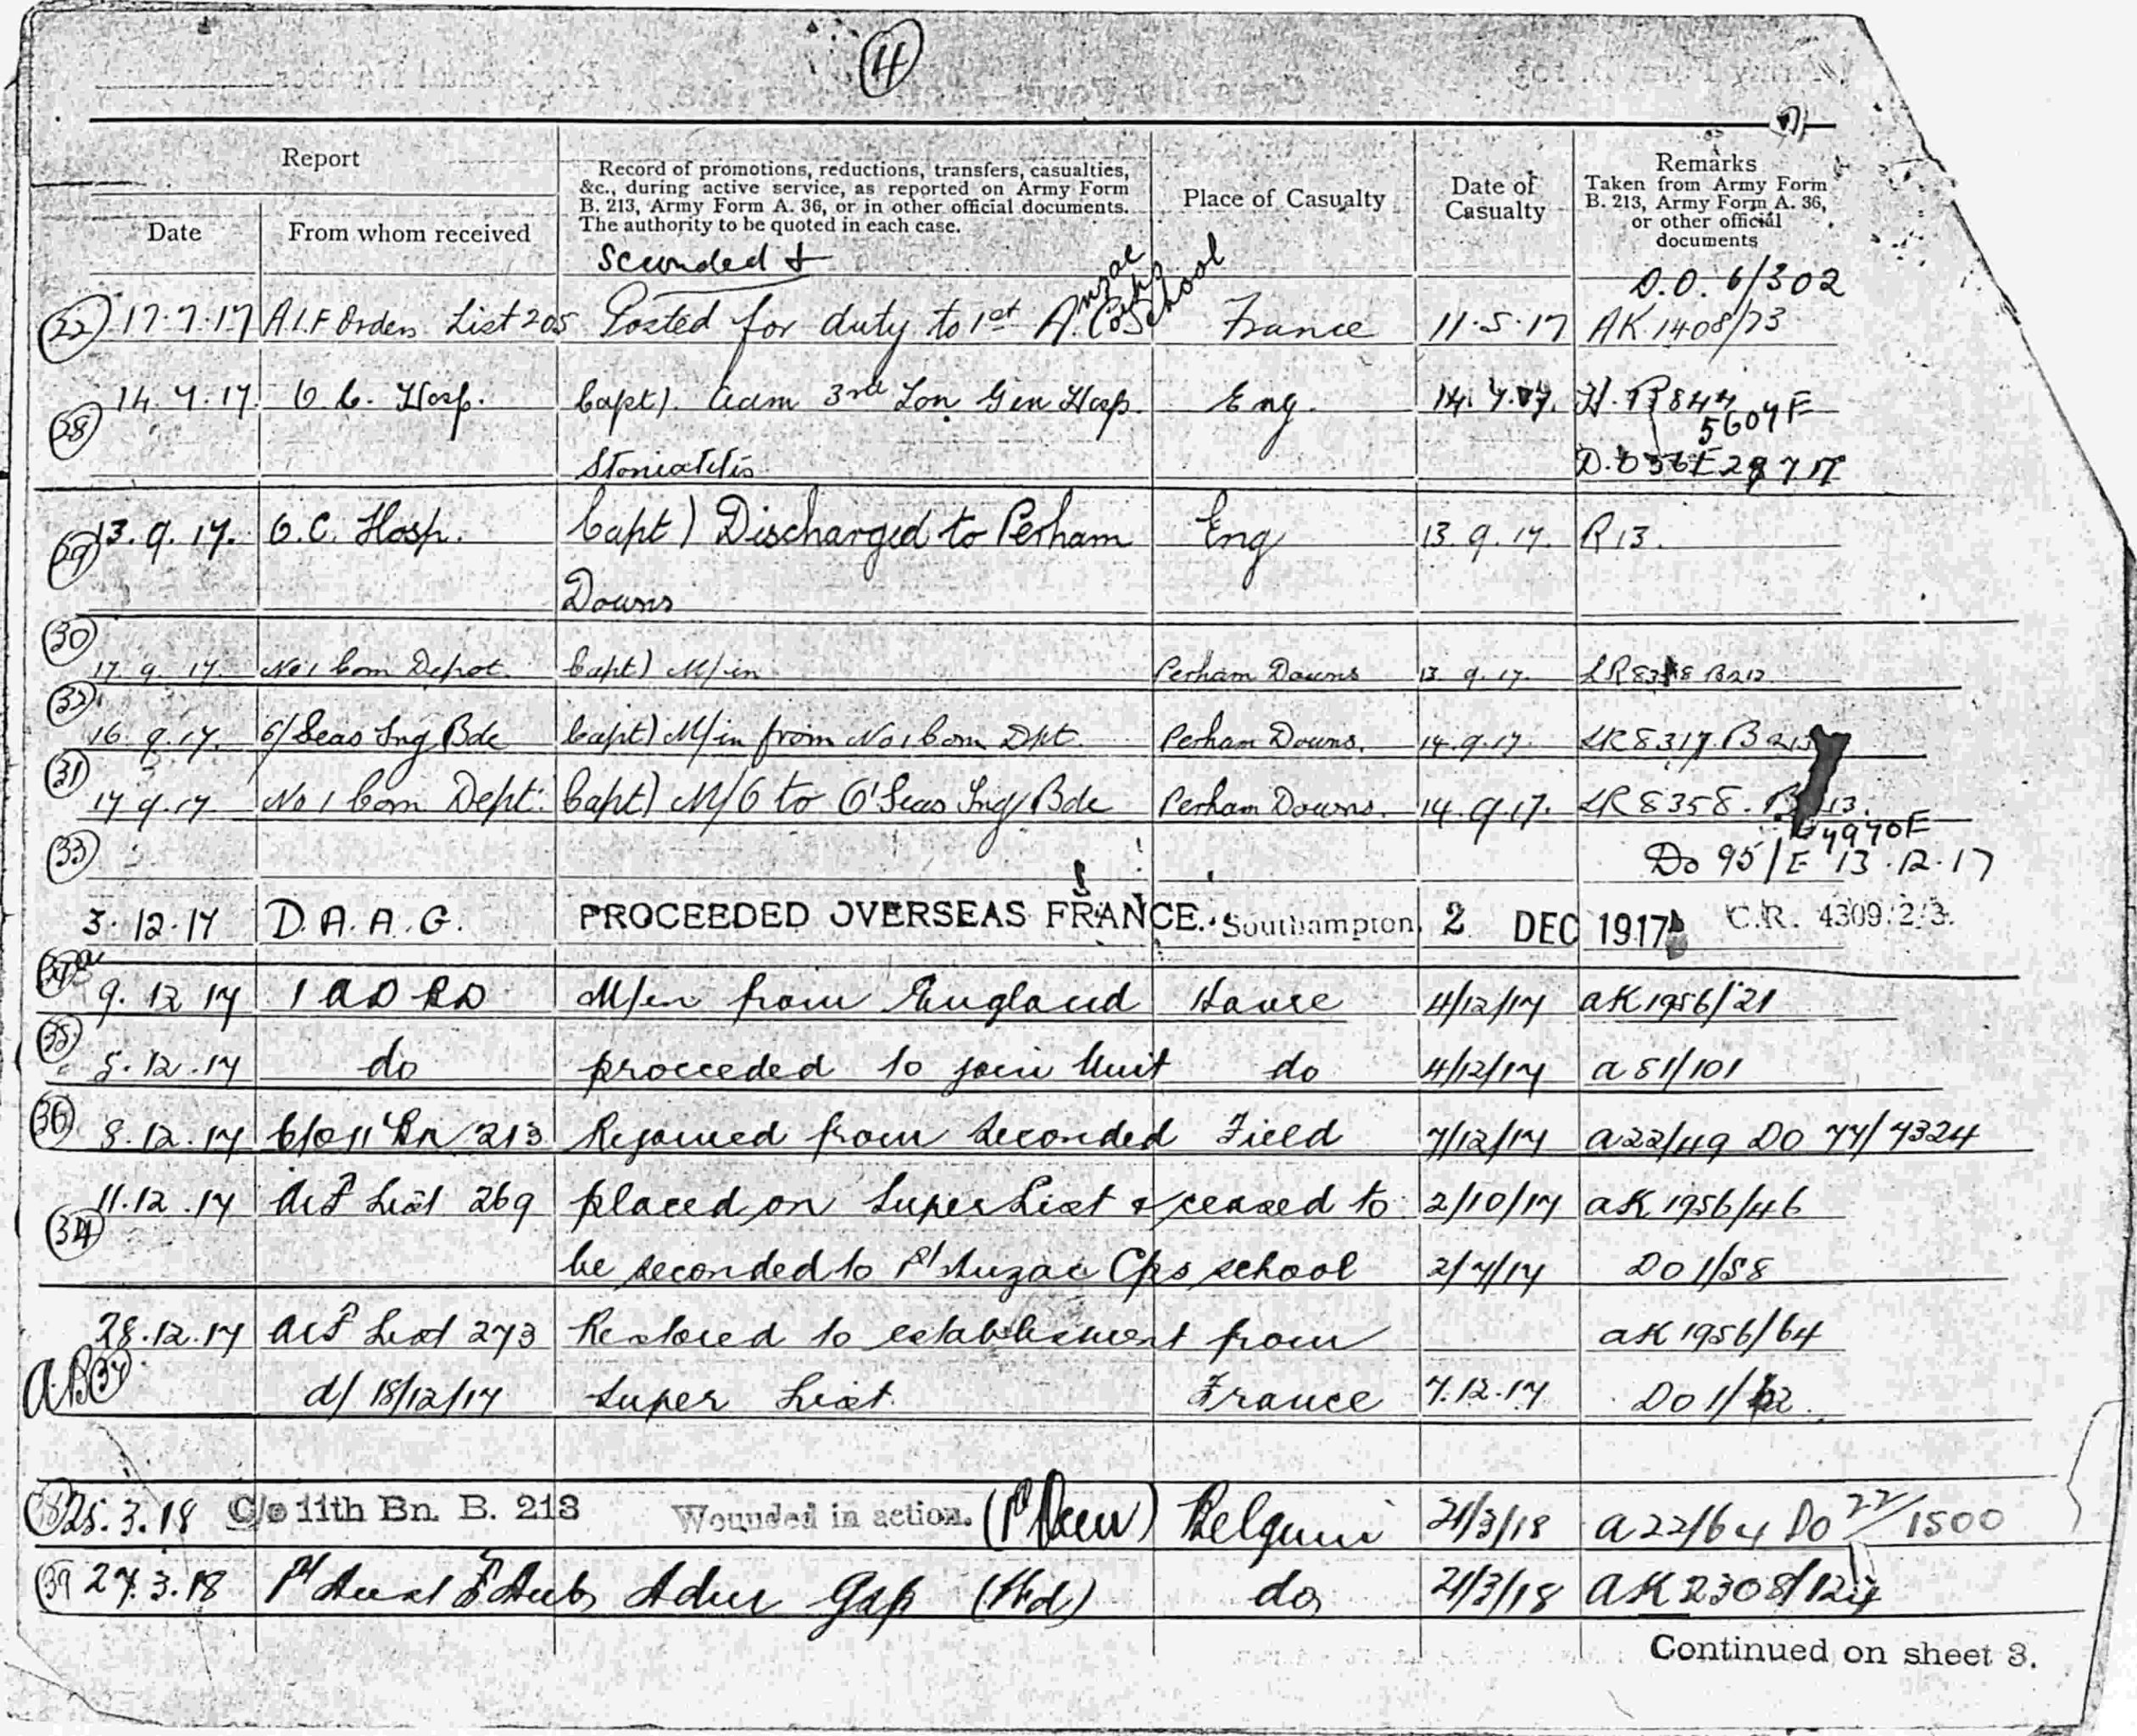 4
Report
Record of promotions, reductions, transfers, casualties,
&c., during active service, as reported on Army Form
B. 213, Army Form A. 36, or in other official documents.
The authority to be quoted in each case.
Place of Casualty
Date of
Casualty
Remarks
Taken from Army Form
B. 213, Army Form A. 36,
or other official
documents
Date
From whom received
Seconded &
D.O. 6/302
(22) 17.7.17 A.I.F Orders List 205 Posted for duty to 1st Anzac Corps School France 11.5.17 AK 1408/73
14.7.17. O.C. Hosp. Capt). Adm 3rd Lon Gen Hosp. Eng. 14.7.17. H.
(28) 5607E
Stomatitis
(29) 13.9.17. O.C. Hosp. Capt) Discharged to Perham Eng 13.9.17. R13.
Downs
(30)
17.9.17. No 1 Com Depot. Capt) M/in Perham Downs 13.9.17. B213
(32)
16.9.17. O/Seas Tng Bde Capt) M/in from No 1 Com Dpt. Perham Downs. 14.9.17. LR 8317. B 213
(31)
17.9.17. No 1 Com Dept. Capt) M/O to O'Seas Tng Bde Perham Downs. 14.9.17. LR 8358.
(33) 4970E
Do 95/E 13.12.17
3.12.17 D.A.A.G. PROCEEDED OVERSEAS FRANCE. Southampton. 2 DEC 1917 C.R. 4309/2/3.
9.12.17 1 A D B D M/in from England Havre 4/12/17 aK 1956/21
(35) 5.12.17 do proceeded to join Unit do 4/12/17 a 51/101
(36) 8.12.17 C/o 11 Bn 213 Rejoined from Seconded Field 7/12/17 a22/49 DO 77/7324
11.12.17 AIF List 269 placed on Super List & ceased to 2/10/17 aK 1956/46
(34) be seconded to 1st Anzac Cps school 2/7/17 DO 1/58
28.12.17 AIF List 273 Restored to establishment from aK 1956/64
(37) d/ 18/12/17 Super List. France 7.12.17 DO 1/62.
25.3.18 C/o 11th Bn. B. 213 Wounded in action. Belgium 21/3/18 a 22/64 Do 22/1500
(39) 27.3.18 1st Aust F Amb Adm Gas (Wd) do 21/3/18 AK 2308/124
Continued on sheet 3.